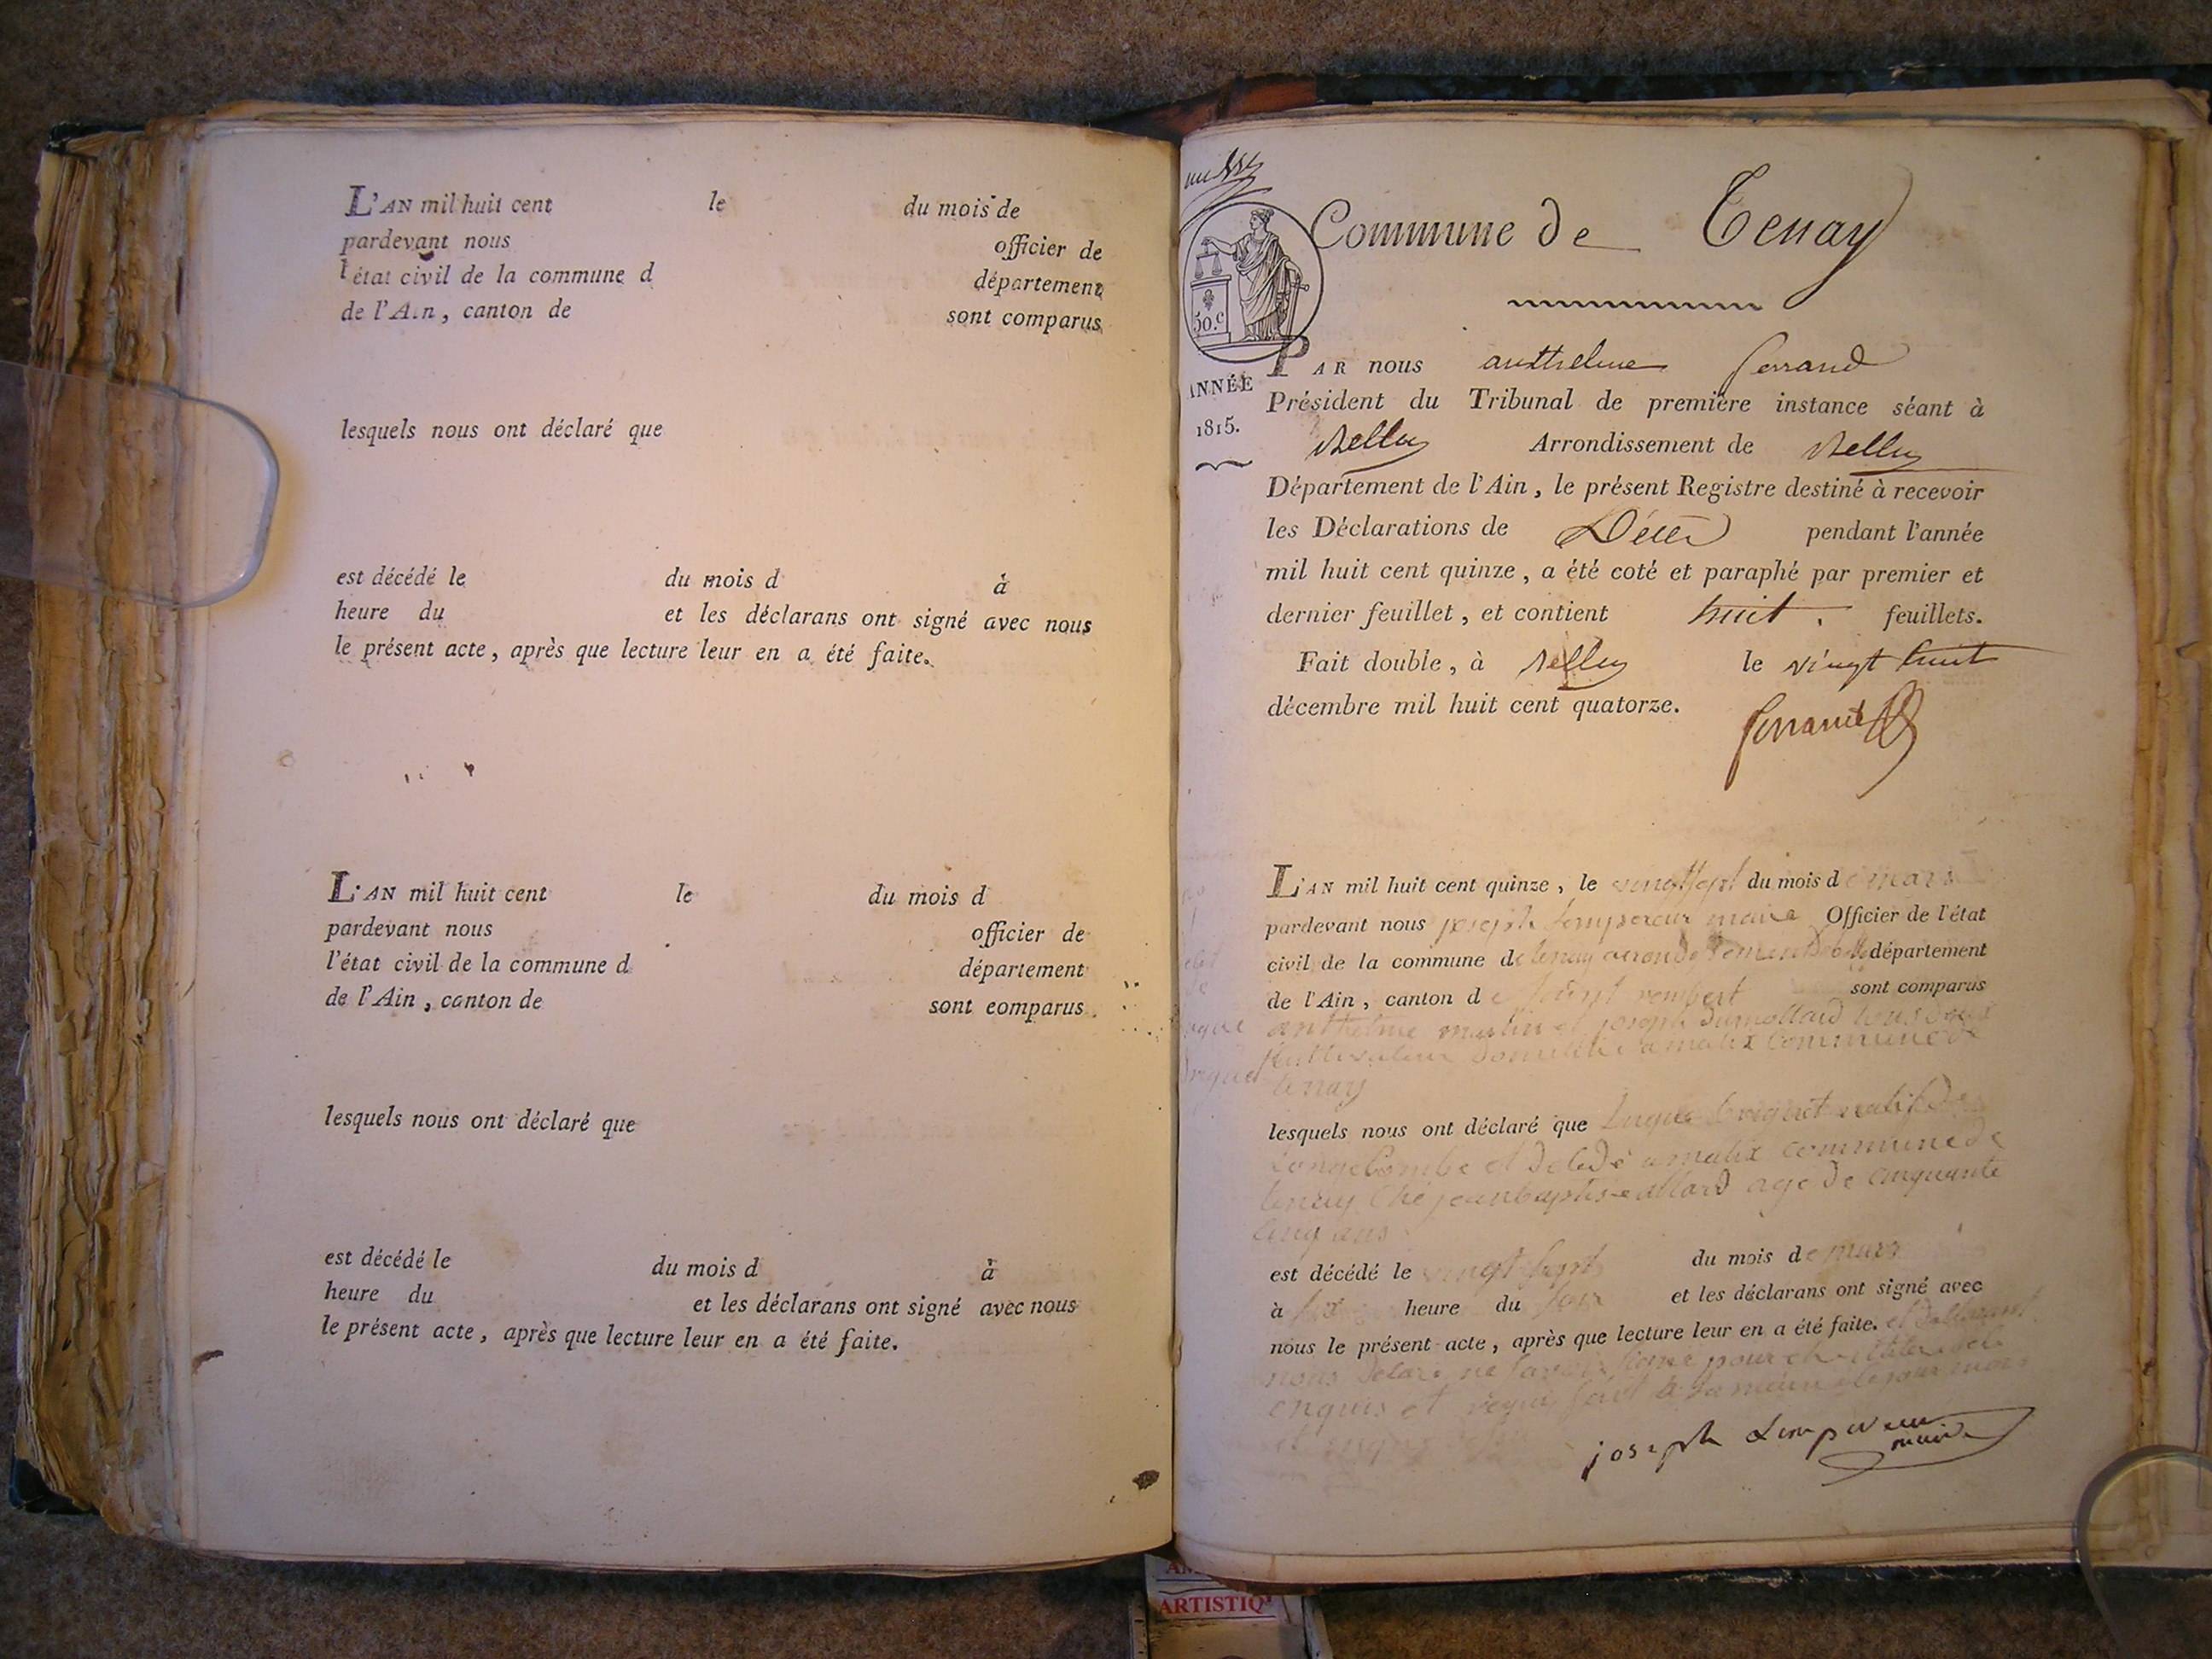 L'AN mil huit cent le du mois de
pardevant nous officier de
l'état civil de la commune d département
de l'Ain, canton de sont comparus
lesquels nous ont déclaré que
est décédé le du mois d à
heure du et les déclarans ont signé avec nous
le présent acte, après que lecture leur en a été faite.
L'AN mil huit cent le du mois d
pardevant nous officier de
l'état civil de la commune d département
de l'Ain, canton de sont comparus
lesquels nous ont déclaré que
est décédé le du mois d à
heure du et les déclarans ont signé avec nous
le présent acte, après que lecture leur en a été faite.
Commune de Tenay
50.c
ANNÉE
1815.
PAR nous anthelme ferrand
Président du Tribunal de première instance séant à
Belley Arrondissement de Belley
Département de l'Ain, le présent Registre destiné à recevoir
les Déclarations de Décès pendant l'année
mil huit cent quinze, a été coté et paraphé par premier et
dernier feuillet, et contient huit feuillets.
Fait double, à Belley le vingt huit
décembre mil huit cent quatorze.
ferrand
L'AN mil huit cent quinze, le vingt sept du mois de mars
pardevant nous joseph lempereur maire Officier de l'état
civil de la commune de tenay département
de l'Ain, canton de saint rembert sont comparus
anthelme martin et joseph dumollard tous deux
domicilié a malix commune de
tenay
lesquels nous ont déclaré que natif de
longecombe et a malix commune de
tenay ché jean baptiste allard age de cinquante
cinq ans
est décédé le vingt sept du mois de mars
à heure du soir et les déclarans ont signé avec
nous le présent acte, après que lecture leur en a été faite.
nous ne savoir signe pour
enquis et requis fait a la mairie le jour mois
et
joseph Lempereur
maire
ARTISTIQ